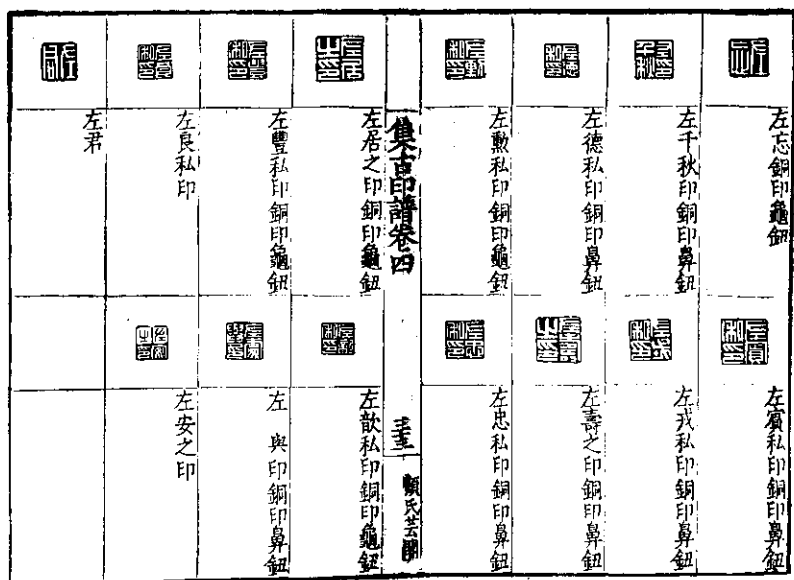 左忘銅印龜鈕
左千秋印銅印鼻鈕
左德私印銅印鼻鈕
左勳私印銅印龜鈕
左賓私印銅印鼻鈕
左戎私印銅印鼻鈕
左壽之印銅印鼻鈕
左忠私印銅印鼻鈕
集古印譜卷四
顧氏芸閣
左居之印銅印龜鈕
左豐私印銅印龜鈕
左良私印
左君
左歆私印銅印龜鈕
左 與印銅印鼻鈕
左安之印